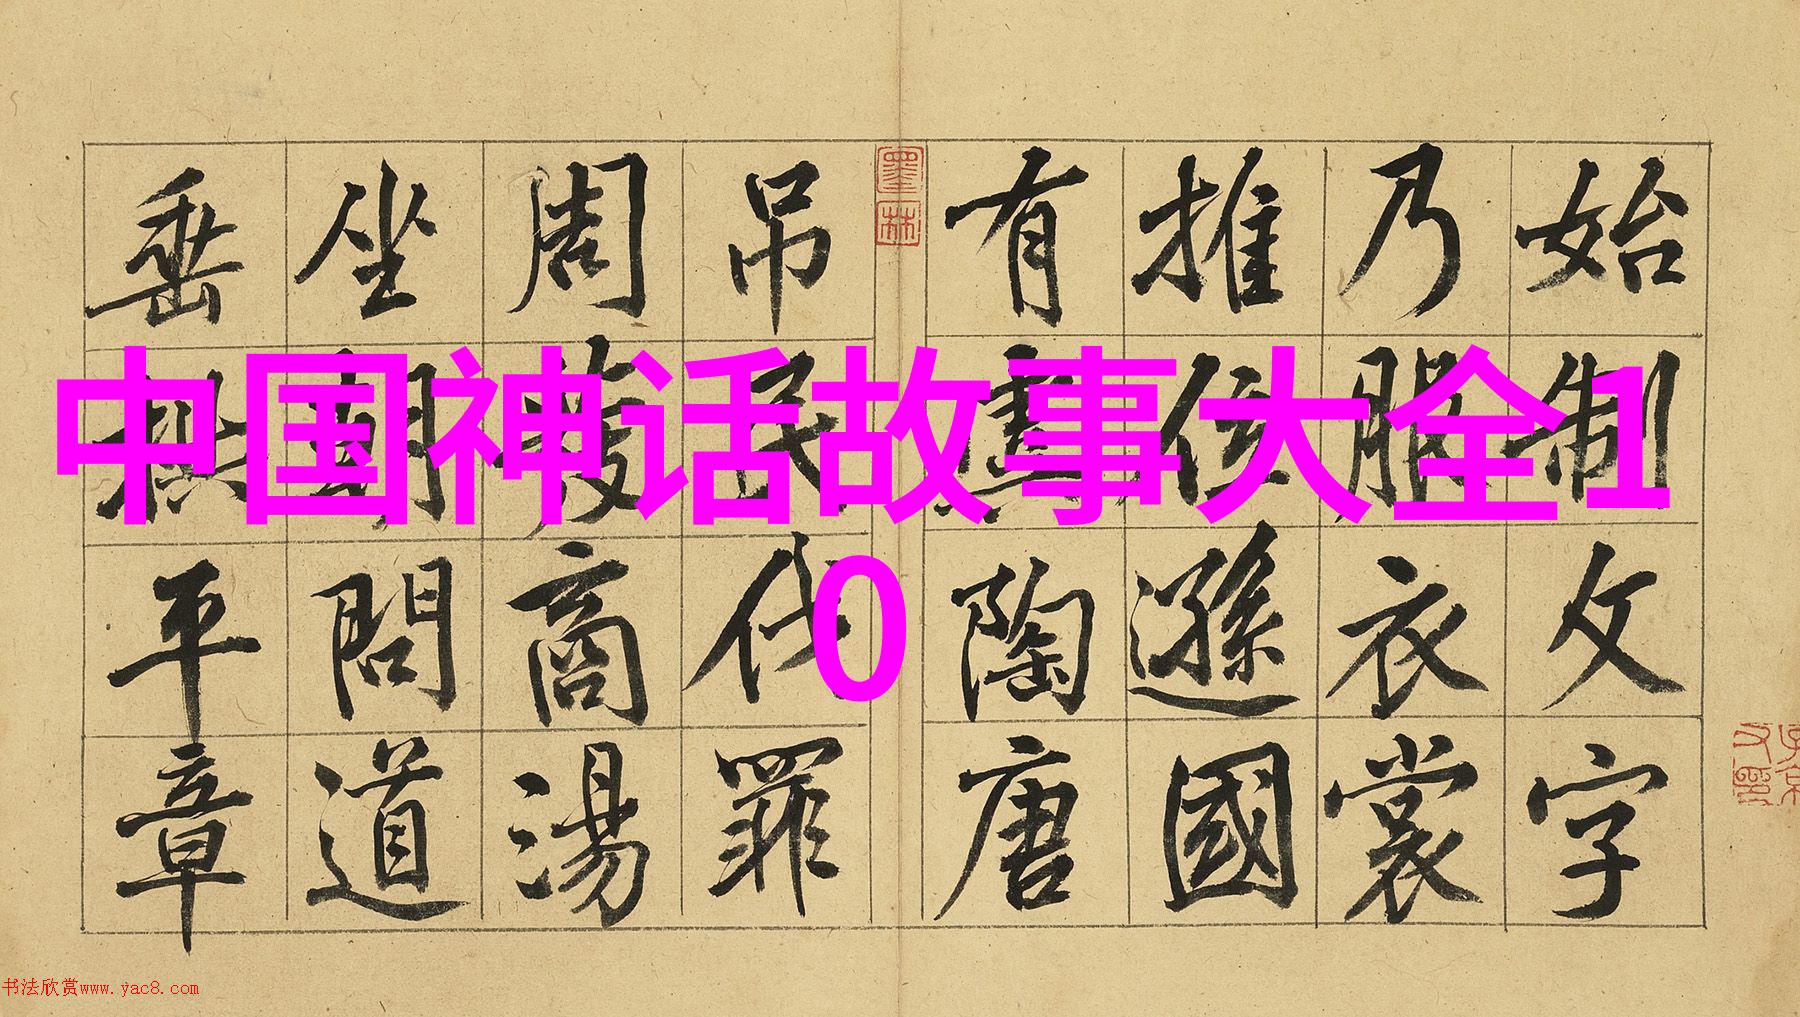 中国神话故事大全1
0
始制文字
乃服衣裳
推位遜國
有虞陶唐
墨林
吊民伐罪
周發商湯
坐朝問道
垂拱平章
书法欣赏www.yac8.com